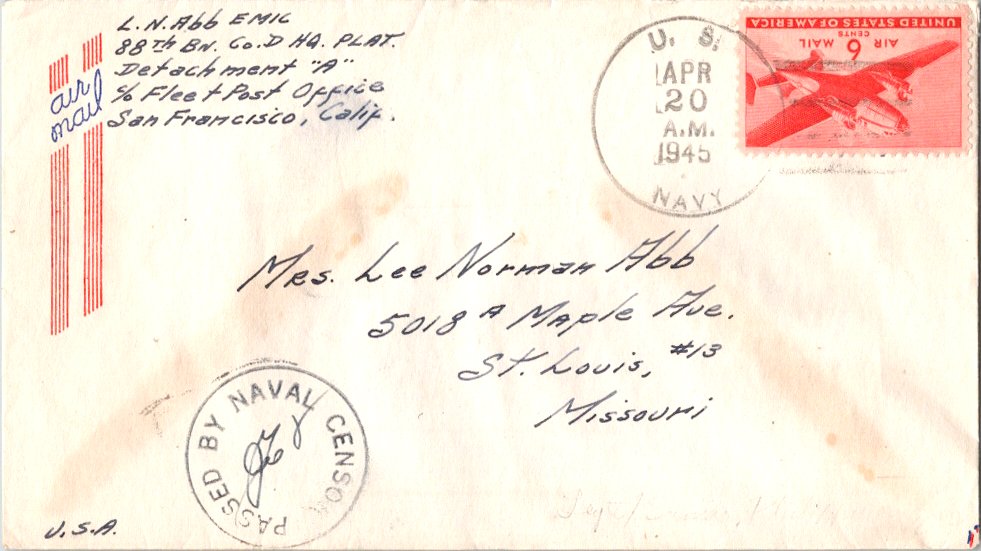 L.N. Abb EM1C
88TH Bn. Co. D HQ. PLAT.
Detachment "A"
c/o Fleet Post Office
San Francisco, Calif.
air
mail
U. S.
APR
20
A.M.
1945
NAVY
UNITED STATES OF AMERICA
6 CENTS
AIR MAIL
Mrs. Lee Norman Abb
5018 A Maple Ave.
St. Louis, #13
Missouri
PASSED BY NAVAL CENSOR
U.S.A.